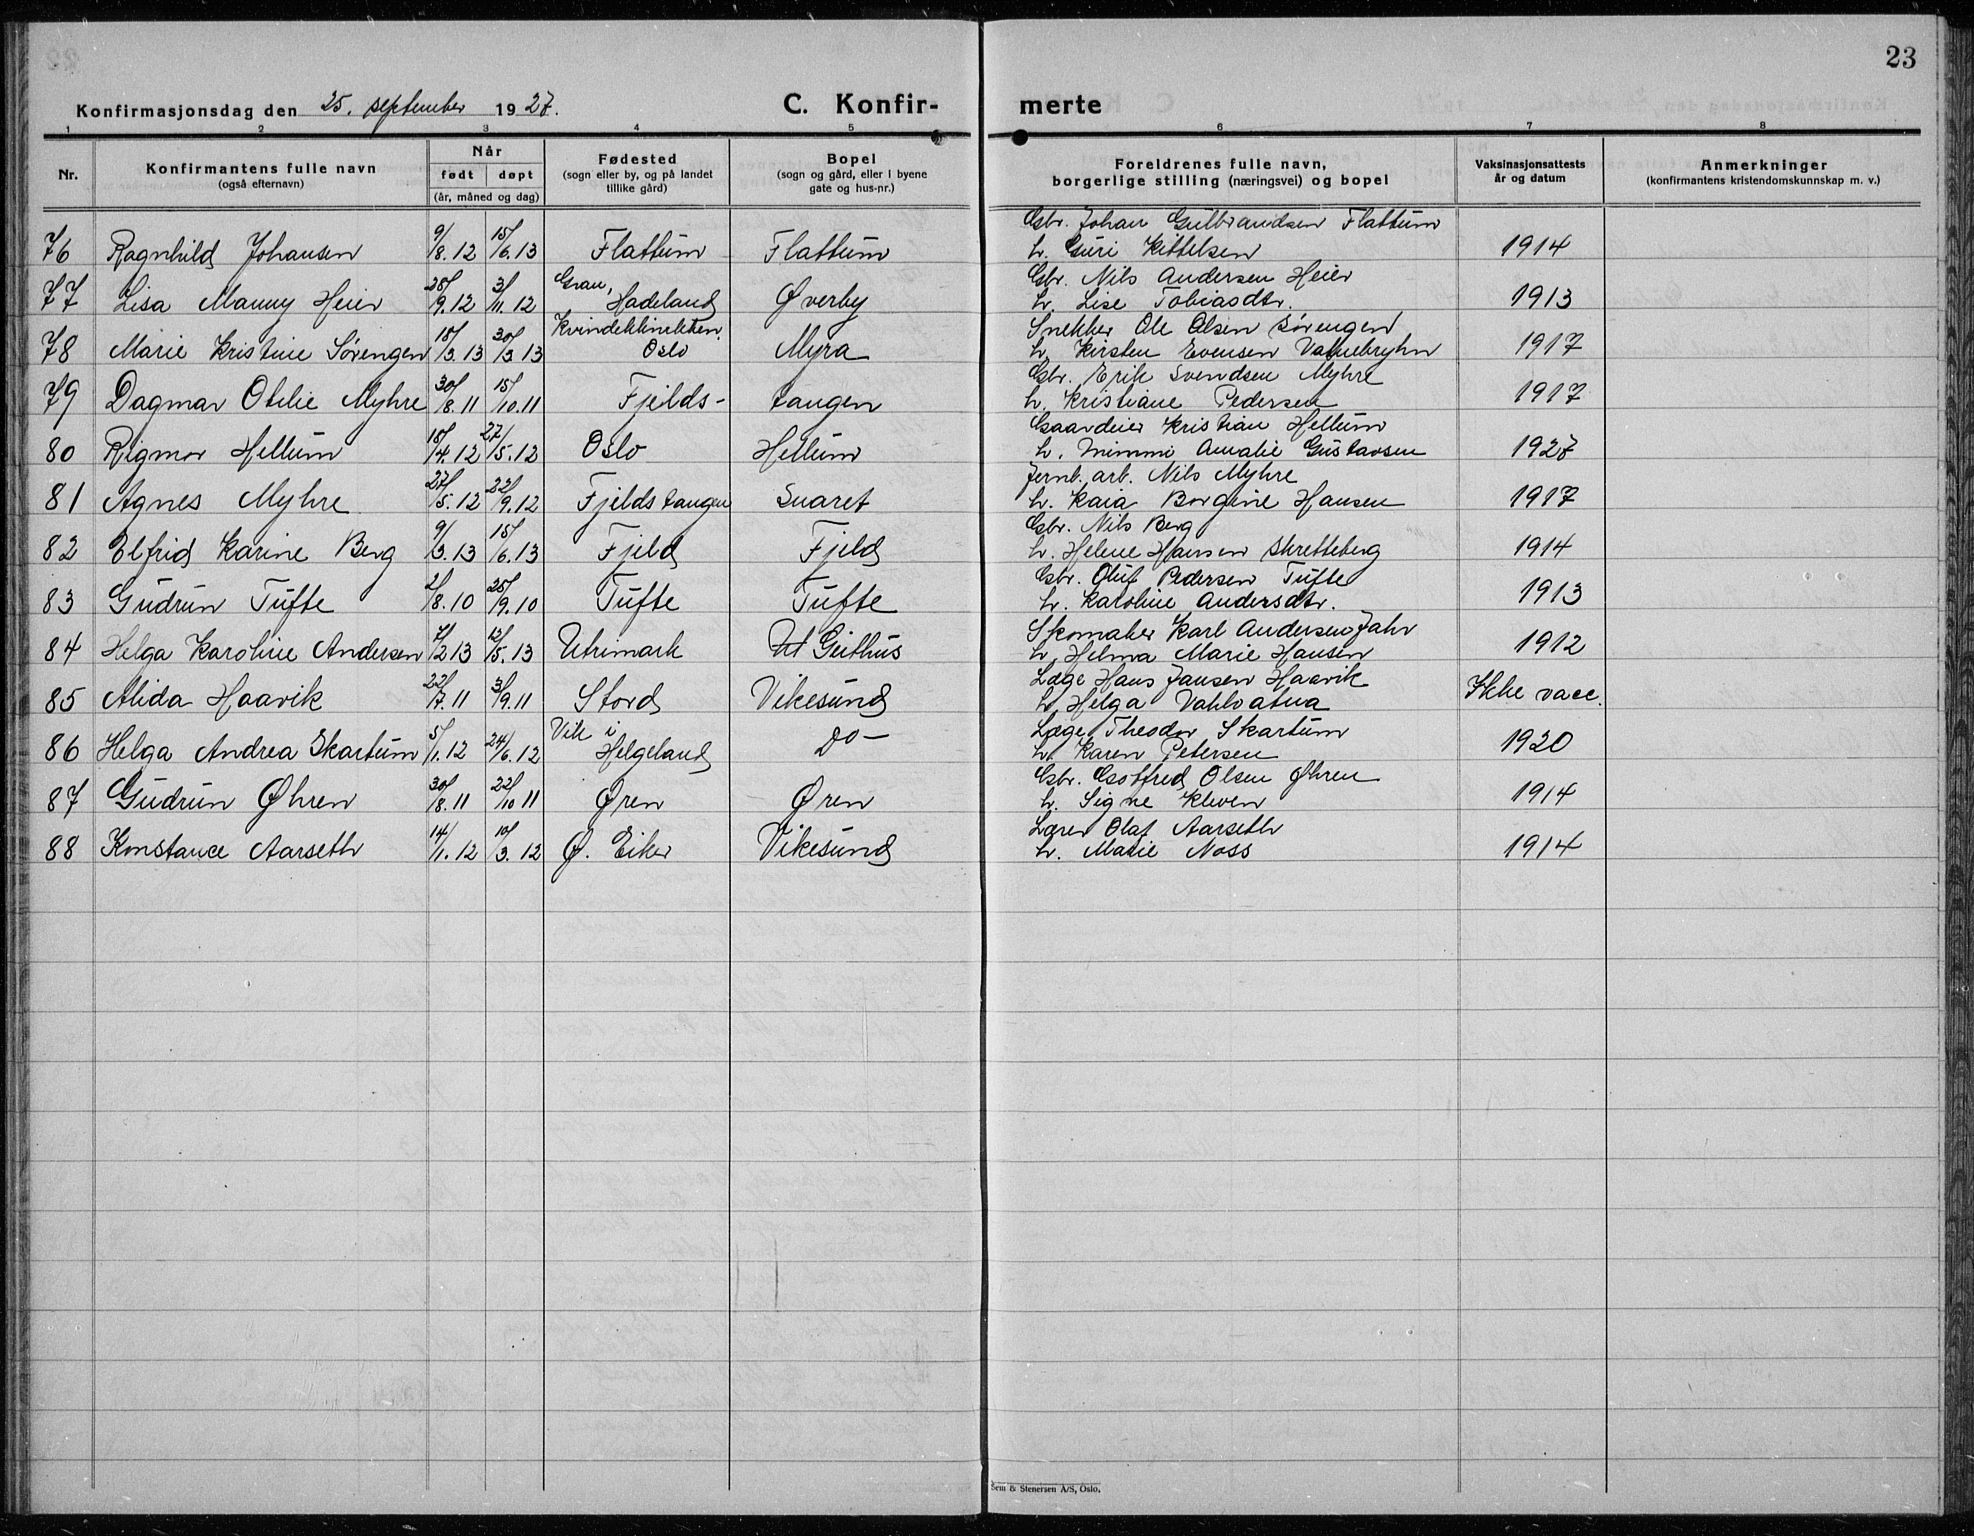 23
Konfirmasjonsdag den 25. september 1927. C. Konfir- merte
1 2 3 4 5 6 7 8
Nr. Konfirmantens fulle navn (også efternavn) Når født døpt (år, måned og dag) Fødested (sogn eller by, og på landet tillike gård) Bopel (sogn og gård, eller i byene gate og hus-nr.) Foreldrenes fulle navn, borgerlige stilling (næringsvei) og bopel Vaksinasjonsattests år og datum Anmerkninger (konfirmantens kristendomskunnskap m. v.)
Gbr. Johan Gulbrandsen Flattum
76 Ragnhild Johansen 9/8.12 15/6.13 Flattum Flattum h. Guri Kittelsen 1914
Gran, Gbr. Nils Andersen Heier
77 Lisa Manny Heier 28/9.12 3/11.12 Hadeland Øverby h. Lise Tobiasdtr. 1913
Kvindeklinikken, Snekker Ole Olsen Sørengen
78 Marie Kristine Sørengen 18/3 13 30/3 13 Oslo Myra h. Kirsten Evensen Vatnebryhn 1917
Gbr. Erik Svendsen Myhre
79 Dagmar Otilie Myhre 30/8.11 15/10.11 Fjelds- tangen h. Kristiane Pedersen 1917
Gaardeier Kristian Hellum
80 Rigmor Hellum 18/4.12 27/5.12 Oslo Hellum h. Mimmi Amalie Gustavsen 1927
Jernb. arb. Nils Myhre
81 Agnes Myhre 27/5.12 22/9.12 Fjeldstangen Snaret h. Kaia Borgine Hansen 1917
Gbr. Nils Berg
82 Elfrid Karine Berg 9/3.13 15/6.13 Fjeld Fjeld h. Helene Hansen Skretteberg 1914
Gbr. Oluf Pedersen Tufte
83 Gudrun Tufte 2/8.10 25/9.10 Tufte Tufte h. Karoline Andersdtr. 1913
Skomaker Karl Andersen Jahr
84 Helga Karoline Andersen 7/2 13 13/5.13 Utrimark Ut Geithus h. Helma Marie Hansen 1912
Læge Hans Jansen Haavik
85 Alida Haavik 22/7.11 3/9.11 Stord Vikesund h. Helga Vahlvatna Ikke vacc.
Vik i Læge Theodor Skartum
86 Helga Andrea Skartum 5/1.12 24/6.12 Helgeland Do — h. Karen Petersen 1920
Gbr. Gotfred Olsen Øhren
87 Gudrun Øhren 30/8.11 22/10 11 Øren Øren h. Signe Kleven 1914
Lærer Olaf Aarseth
88 Konstance Aarseth 14/1.12 10/3.12 Ø. Eiker Vikesund h. Marie Noss 1914
Sem & Stenersen A/S, Oslo.